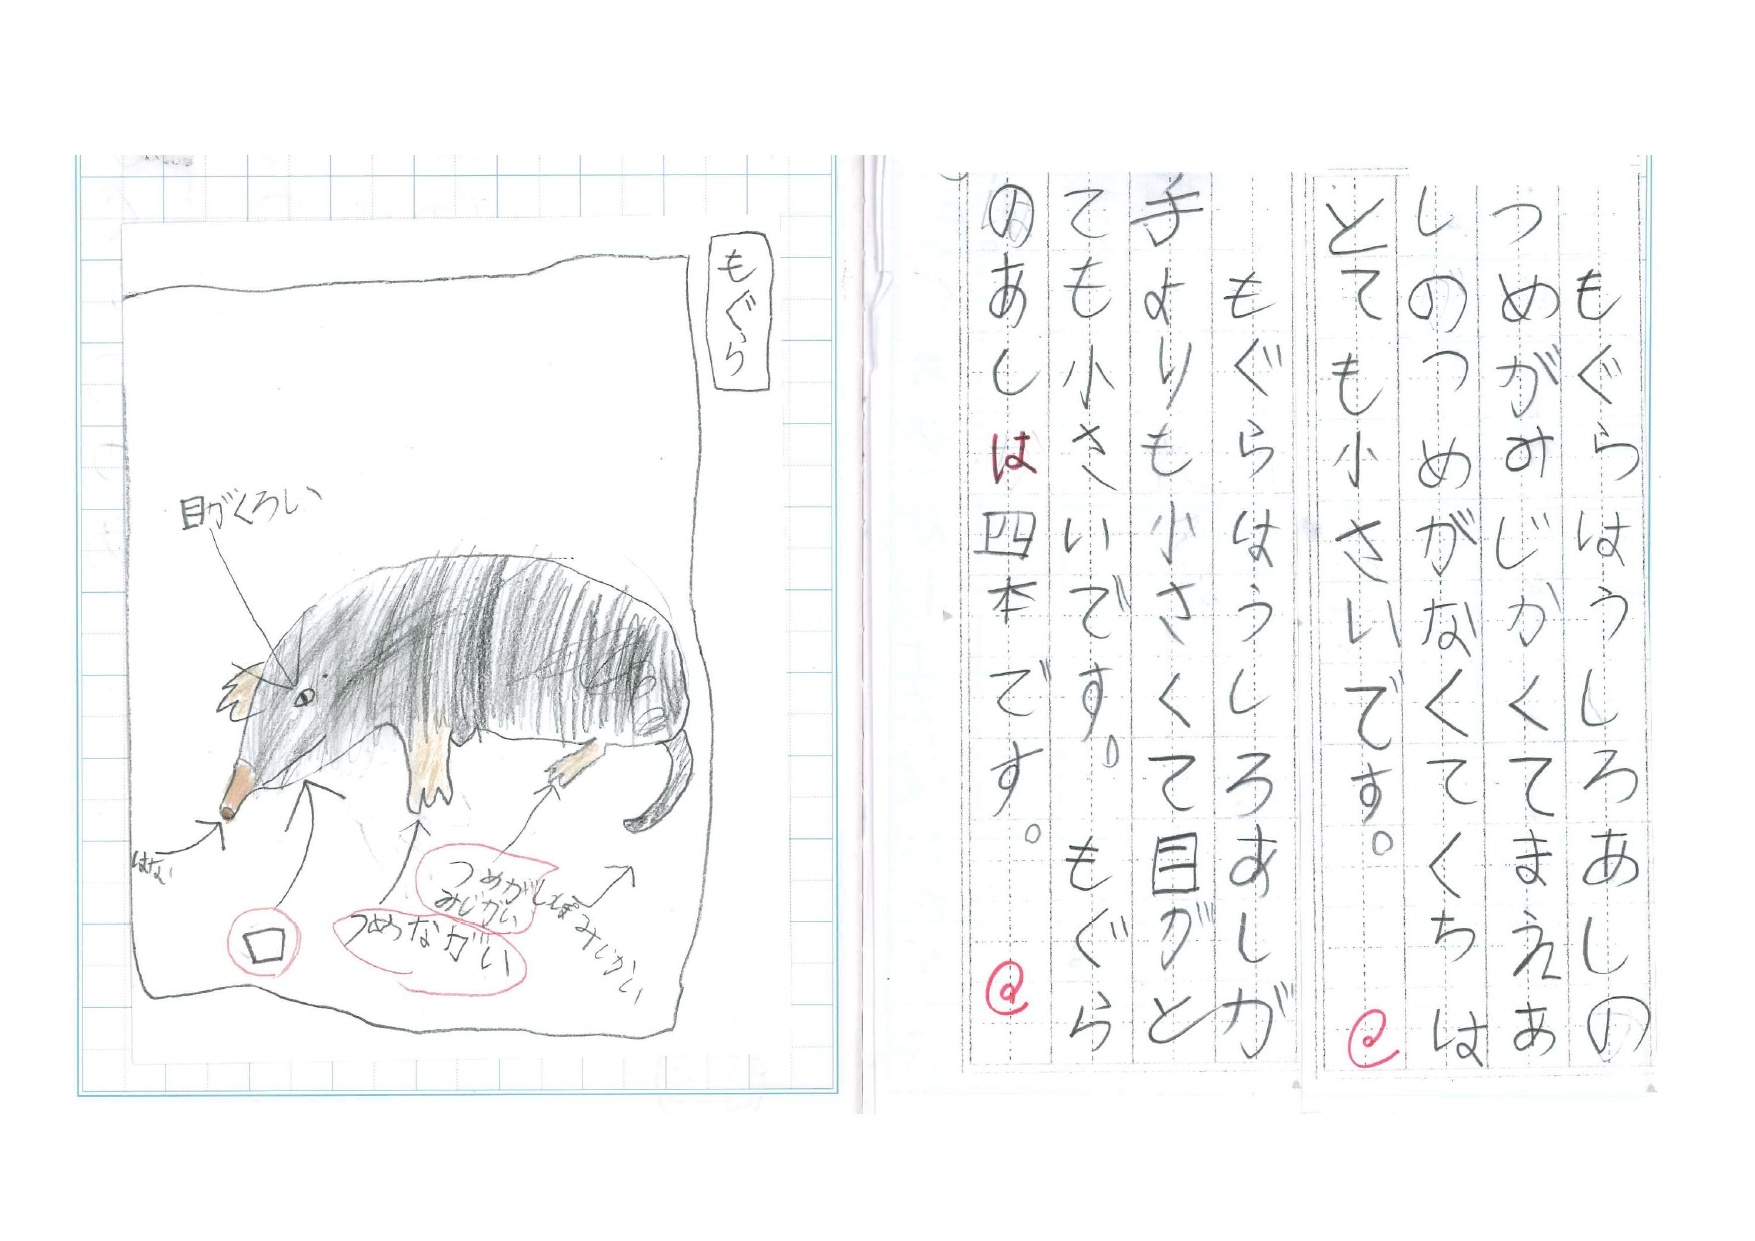 もぐらはうしろあしの
つめがみじかくてまえあ
しのつめがなくてくちは
とても小さいです。
もぐらはうしろあしが
手よりも小さくて目がと
ても小さいです。もぐら
のあしは四本です。
もぐら
目がくろい
はな
口
つめながい
つめが
みじかい
しっぽ
みじかい